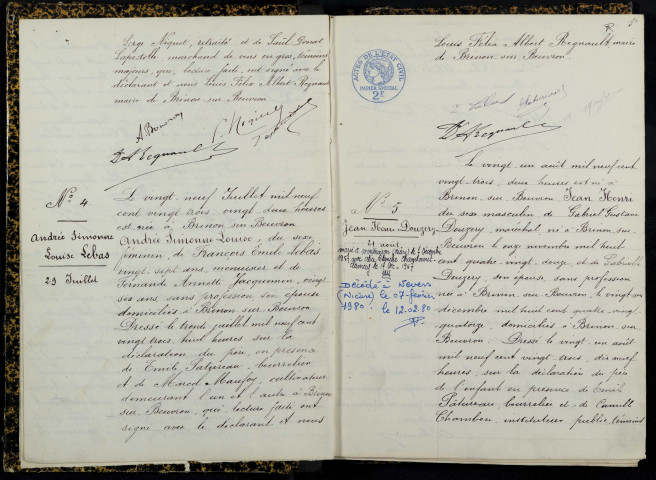 Serge Niquet, retraité et de Paul Donat
Lapertolle, marchand de vins en gros, témoins
majeurs, qui, lecture faite, ont signé avec le
déclarant et nous Louis Félix Albert Regnault
maire de Brinon sur Beuvron
DA Regnault
Nº 4
Andrée Simonne
Louise Lebas
29 Juillet
Le vingt-neuf Juillet mil neuf
cent vingt trois, vingt deux heures
est née à Brinon sur Beuvron
Andrée Simonne Louise, du sexe
féminin, de François Emile Lebas
vingt sept ans, menuisier et de
Fernande Annette Jacquemin, vingt
ans, sans profession son épouse
domiciliés à Brinon sur Beuvron
Dressé le trente juillet mil neuf cent
vingt trois, huit heures sur la
déclaration du père, en présence
de Emile Patureau, bourrelier
et de Marcel cultivateur
demeurant l'un et l'autre à Brinon
sur Beuvron, qui, lecture faite ont
signé avec le déclarant et nous
5
Louis Félix Albert Regnault, maire
de Brinon sur Beuvron.
ACTES DE L'ETAT CIVIL
PAPIER SPECIAL
2F
DA Regnault
Nº 5
Jean Henri Douzery
21 août
Décédé à Nevers
(Nièvre) le 07 février
1980. le 12.02.80
Le vingt un août mil neuf cent
vingt-trois, deux heures est né à
Brinon sur Beuvron Jean Henri
du sexe masculin de Gabriel Gustave
Douzery, maréchal, né à Brinon sur
Beuvron le onze novembre mil huit
cent quatre-vingt-douze et de
Douzery, son épouse sans profession
née à Brinon sur Beuvron, le vingt
décembre mil huit cent quatre-vingt
quatorze, domiciliés à Brinon sur
Beuvron. Dressé le vingt un août
mil neuf cent vingt-trois, dix neuf
heures, sur la déclaration du père
de l'enfant en présence de Emile
Patureau, bourrelier et de Camille
Chambon, instituteur public, témoins